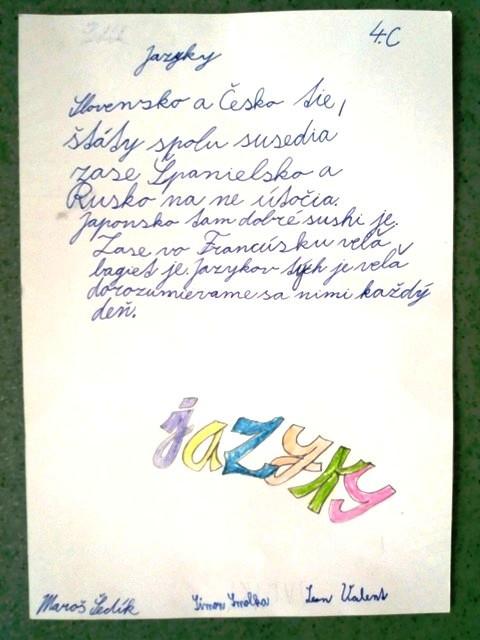 4.C
Jazyky
Slovensko a Česko tie,
štáty spolu susedia
zase Španielsko a
Rusko na ne útočia.
Japonsko tam dobré sushi je.
Zase vo Francúsku veľa
bagiet je. Jazykov tých je veľa
dorozumievame sa nimi každý
deň.
jazyky
Maroš Sedík Simon Smolka Leon Valent